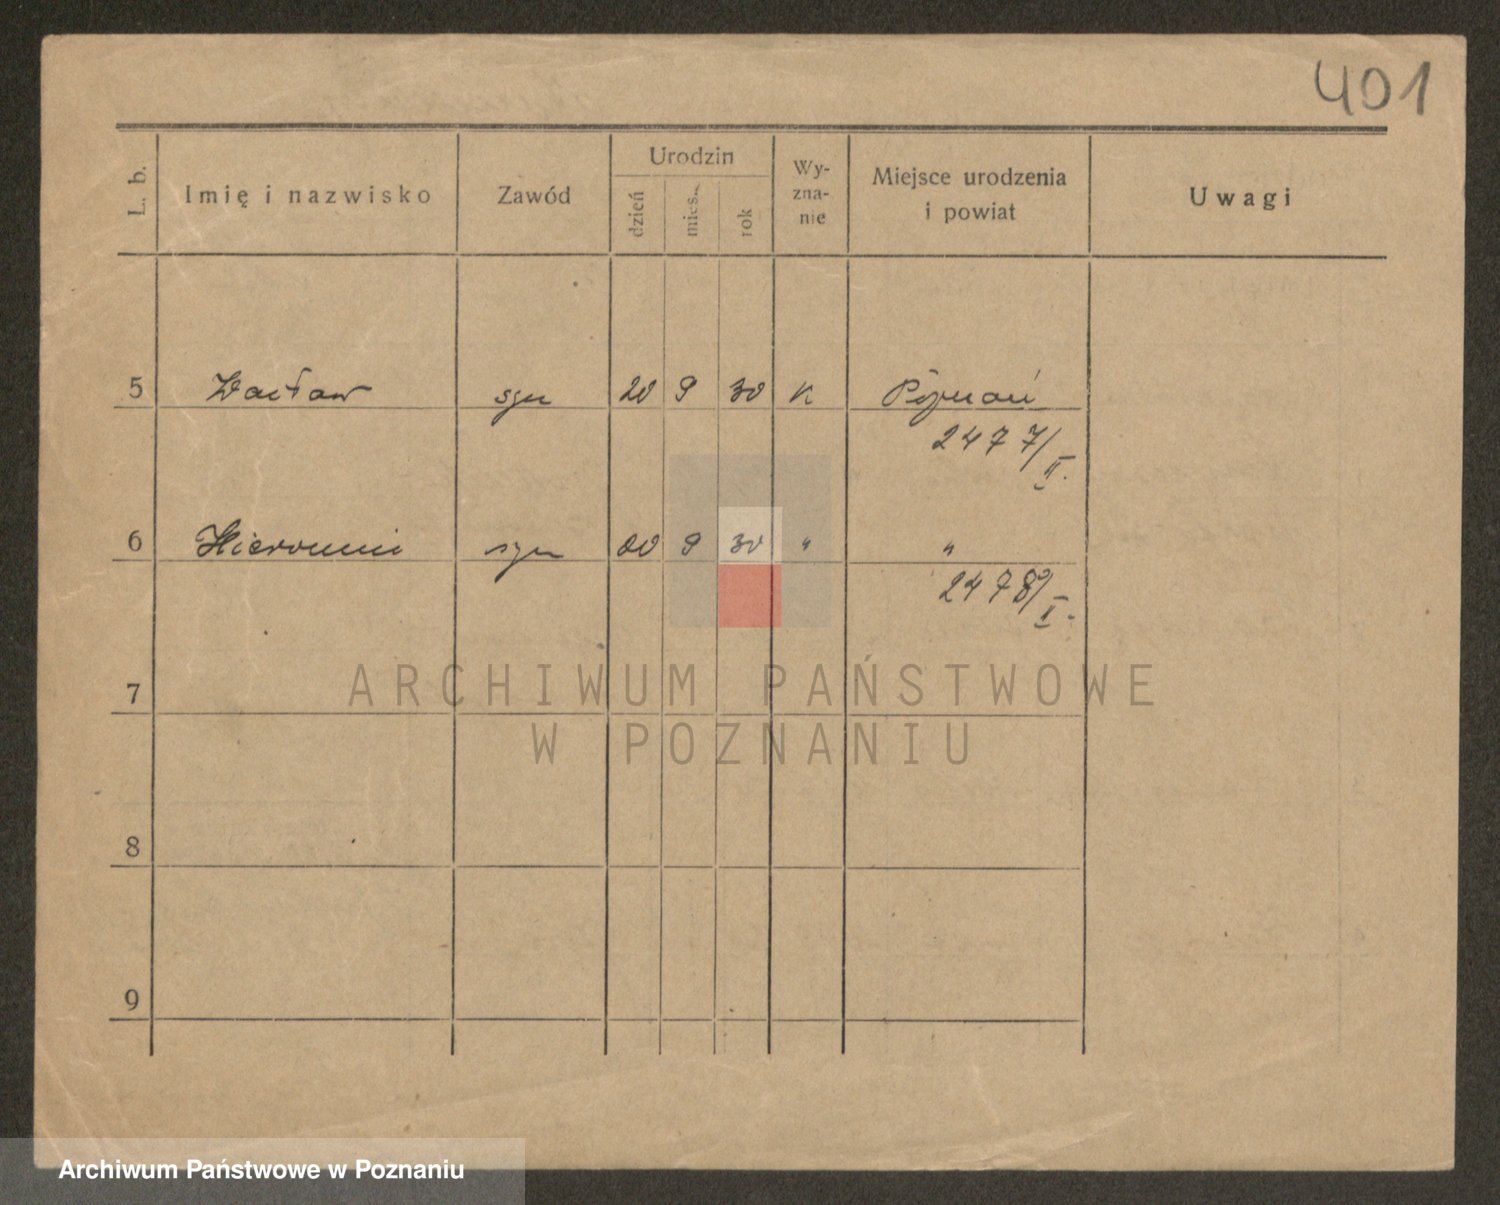 401
L. b.
Imię i nazwisko
Zawód
Urodzin
dzień
mies.
rok
Wy-
zna-
nie
Miejsce urodzenia
i powiat
Uwagi
5 Wacław syn 20 9 30 K Poznań
2477/II.
6 Hieronim syn 20 9 30 " "
2478/II.
7
8
9
ARCHIWUM PAŃSTWOWE
W POZNANIU
Archiwum Państwowe w Poznaniu